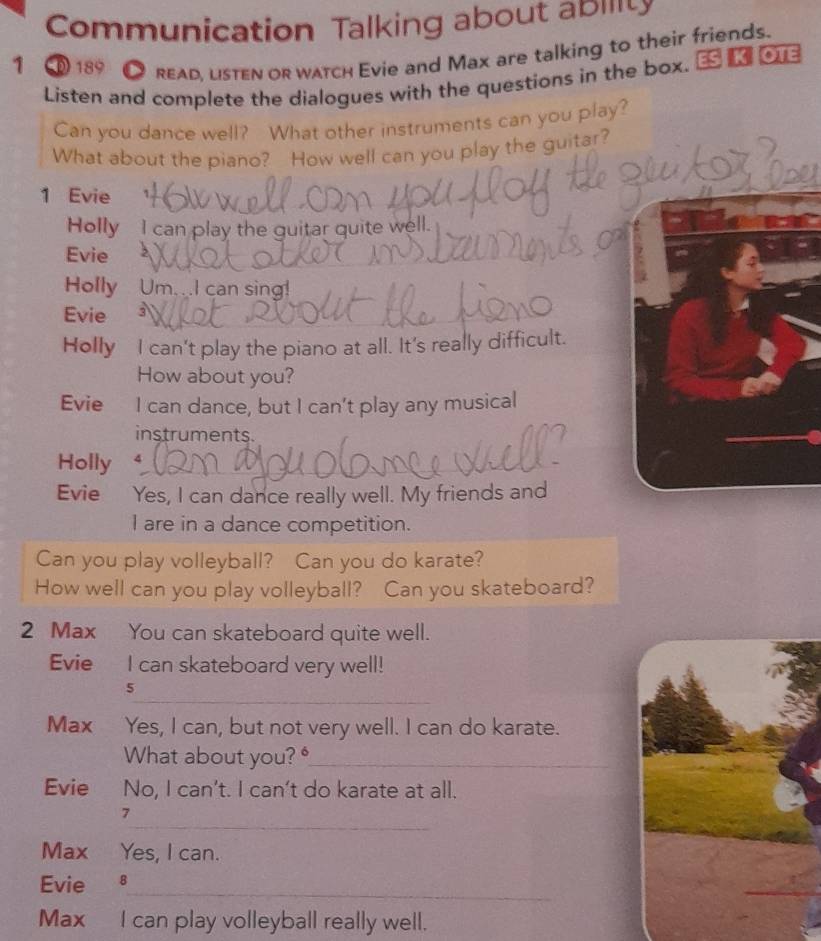 Communication Talking about ability
1 189 READ, LISTEN OR WATCH Evie and Max are talking to their friends.
Listen and complete the dialogues with the questions in the box. ES K OTE
Can you dance well? What other instruments can you play?
What about the piano? How well can you play the guitar?
1 Evie 1 How well can you play the guitar?
Holly I can play the guitar quite well.
Evie 2 What other instruments can
Holly Um...I can sing!
Evie 3 What about the piano
Holly I can't play the piano at all. It's really difficult.
How about you?
Evie I can dance, but I can't play any musical
instruments.
Holly 4 Can you dance well?
Evie Yes, I can dance really well. My friends and
I are in a dance competition.
Can you play volleyball? Can you do karate?
How well can you play volleyball? Can you skateboard?
2 Max You can skateboard quite well.
Evie I can skateboard very well!
5
Max Yes, I can, but not very well. I can do karate.
What about you? 6
Evie No, I can't. I can't do karate at all.
7
Max Yes, I can.
Evie 8
Max I can play volleyball really well.